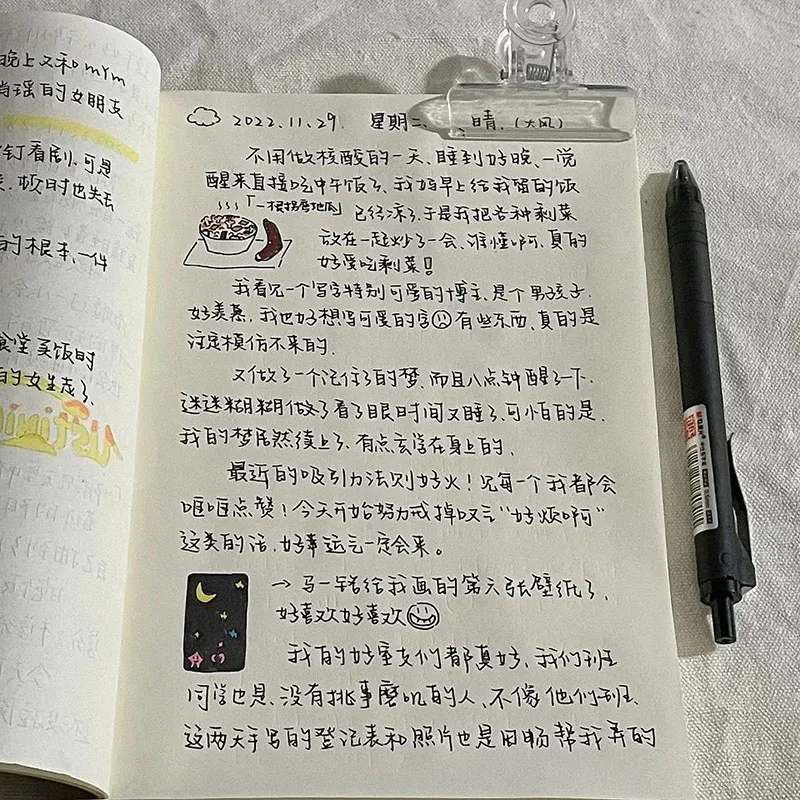 晚上又和mym
的女朋友
钉看剧.可是
板时也失去
的根本,一件
食堂买饭时
的女生走了.
2022.11.29. 星期二. 晴.(大风)
不用做核酸的一天、睡到好晚、一觉
醒来直接吃中午饭了、我妈早上给我留的饭
「一根拐弯地瓜」 已经凉了、于是我把各种剩菜
放在一起炒了一会、谁懂啊,真的
好爱吃剩菜!
我看见一个写字特别可爱的博主、是个男孩子.
好羡慕、我也好想写可爱的字 有些东西、真的是
注定模仿不来的.
又做了一个记住了的梦、而且八点钟醒了一下.
迷迷糊糊做了看了眼时间又睡了、可怕的是、
我的梦居然续上了、有点玄学在身上的.
最近的吸引力法则好火!见每一个我都会
哐哐点赞!今天开始努力戒掉叹气“好烦啊”
这类的话、好事运气一定会来。
→ 马一铭给我画的第六张壁纸了、
好喜欢好喜欢
我的好室友们都真好、我们班
同学也是、没有挑事磨叽的人、不像他们班.
这两天手写的登记表和照片也是田畅帮我弄的